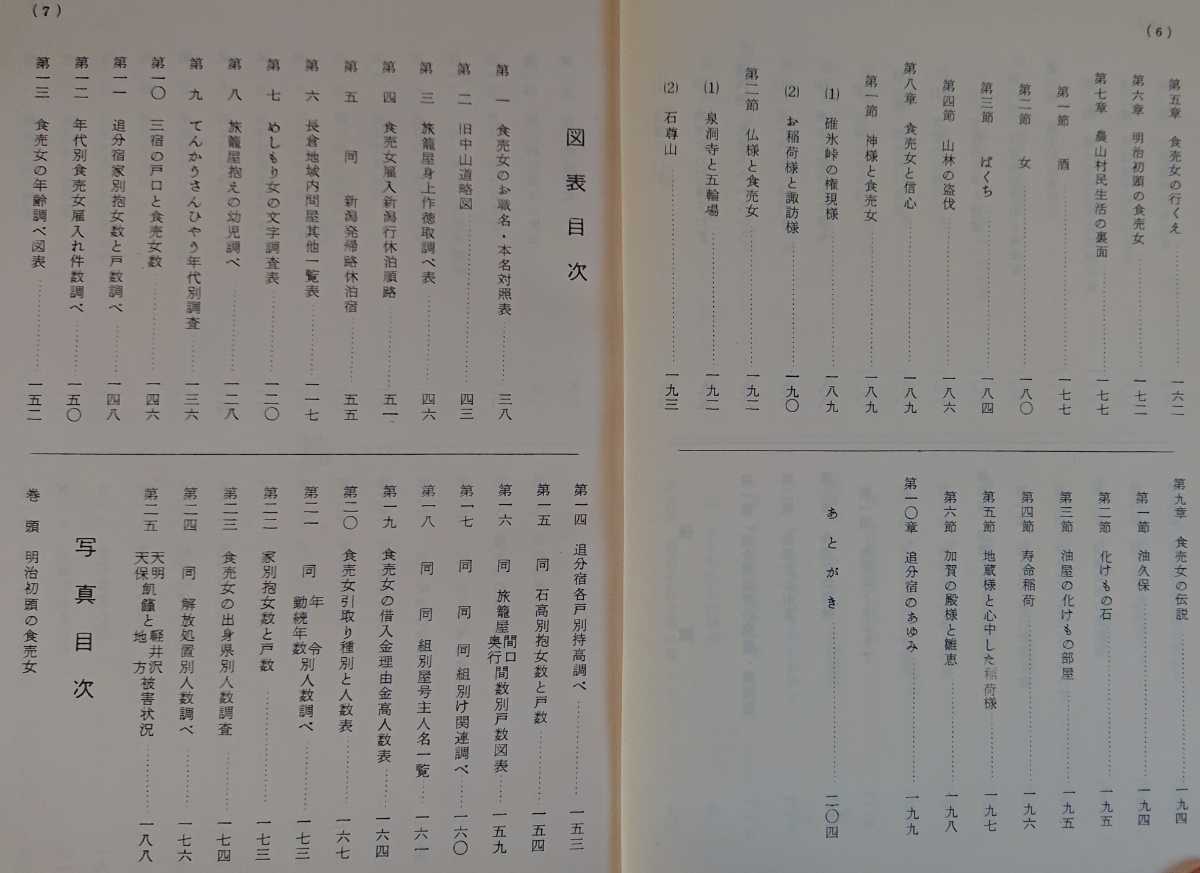 (6)
第五章 食売女の行くえ…………一六二
第六章 明治初頭の食売女…………一七二
第七章 農山村民生活の裏面…………一七七
第一節 酒…………一七七
第二節 女…………一八〇
第三節 ばくち…………一八四
第四節 山林の盗伐…………一八六
第八章 食売女と信心…………一八九
第一節 神様と食売女…………一八九
(1) 碓氷峠の権現様…………一八九
(2) お稲荷様と諏訪様…………一九〇
第二節 仏様と食売女…………一九二
(1) 泉洞寺と五輪場…………一九二
(2) 石尊山…………一九三
第九章 食売女の伝説…………一九四
第一節 油久保…………一九四
第二節 化けもの石…………一九五
第三節 油屋の化けもの部屋…………一九五
第四節 寿命稲荷…………一九六
第五節 地蔵様と心中した稲荷様…………一九七
第六節 加賀の殿様と雛恵…………一九八
第一〇章 追分宿のあゆみ…………一九九
あとがき…………二〇四
(7)
図表目次
第一 食売女のお職名・本名対照表…………三八
第二 旧中山道略図…………四三
第三 旅籠屋身上作徳取調べ表…………四六
第四 食売女雇入新潟行休泊順路…………五一
第五 同 新潟発帰路休泊宿…………五五
第六 長倉地域内問屋其他一覧表…………一一七
第七 めしもり女の文字調査表…………一二〇
第八 旅籠屋抱えの幼児調べ…………一二八
第九 てんかうさんひやう年代別調査…………一三六
第一〇 三宿の戸口と食売女数…………一四六
第一一 追分宿家別抱女数と戸数調べ…………一四八
第一二 年代別食売女雇入れ件数調べ…………一五〇
第一三 食売女の年齢調べ図表…………一五二
第一四 追分宿各戸別持高調べ…………一五三
第一五 同 石高別抱女数と戸数…………一五四
第一六 同 旅籠屋間口奥行間数別戸数図表…………一五九
第一七 同 同 同 組別け関連調べ…………一六〇
第一八 同 同 組別屋号主人名一覧…………一六一
第一九 食売女の借入金理由金高人数表…………一六四
第二〇 食売女引取り種別と人数表…………一六七
第二一 同 年令 勤続年数別人数調べ…………一七三
第二二 家別抱女数と戸数…………一七三
第二三 食売女の出身県別人数調査…………一七四
第二四 同 解放処置別人数調べ…………一七六
第二五 天明天保飢饉と軽井沢地方被害状況…………一八八
写真目次
巻頭 明治初頭の食売女